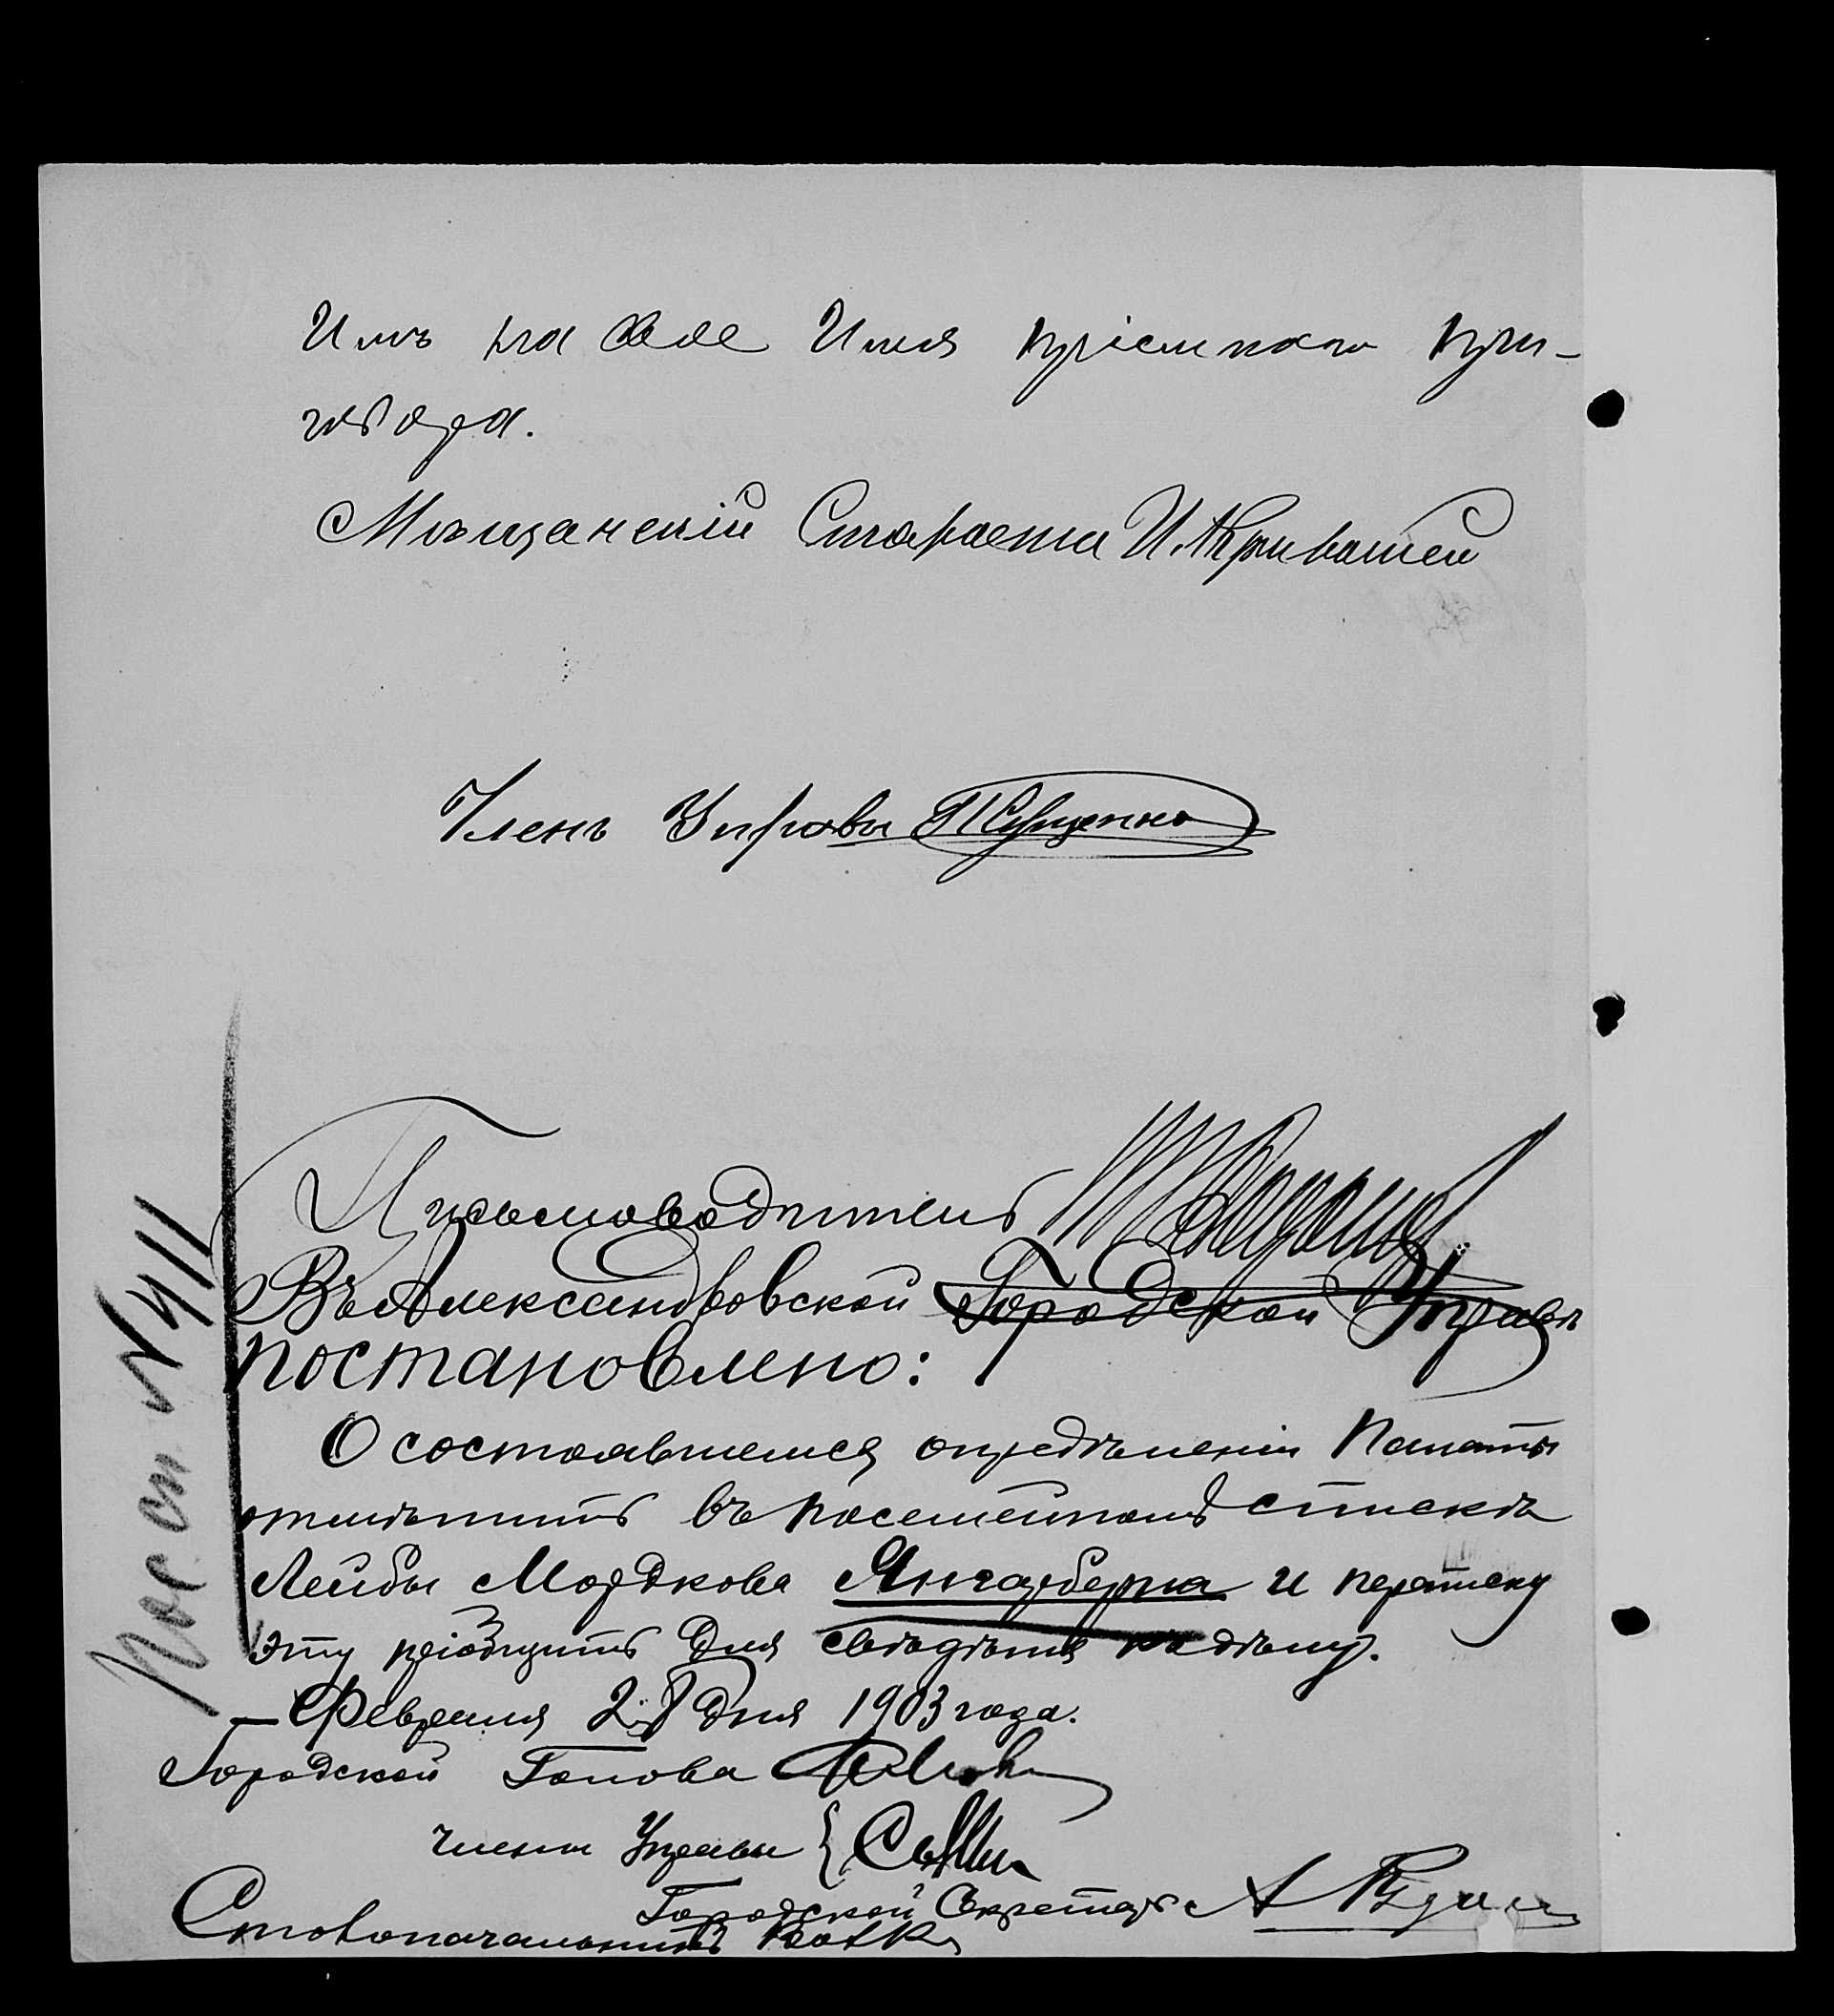 Имъ на свое Имя пріемнаго при-
говора.
Мѣщанскій Староста И. Кривошей
Членъ Управы
Письмоводитель
Въ Александровской Городской Управѣ
постановлено:
О состоявшемся опредѣленіи Палаты
отмѣтить въ посемейномъ спискѣ
Лейбы Мордкова Янгарберга и переписку
эту пріобщить для свѣдѣнія къ дѣлу.
Февраля 28 дня 1903 года.
Городской Голова
Члены Управы
Городской Секретарь
Столоначальникъ